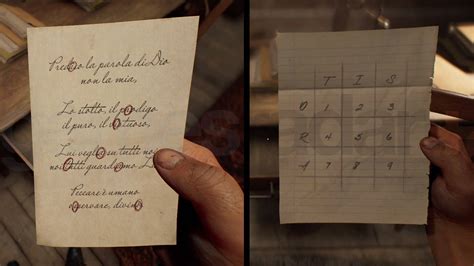 Predico la parola di Dio
non la mia,
Lo stolto, il prodigo
il puro, il virtuoso,
Lui veglia su tutti noi
noi tutti guardiamo
Peccare è umano
osservare, divino
T I S
1 2 3
R 4 5 6
A 7 8 9